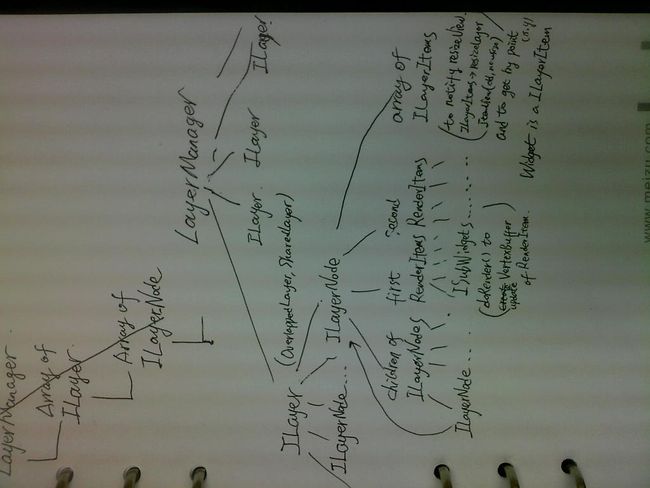 LayerManager.
Array of
ILayer.
Array of
ILayerNode
LayerManager
ILayer
ILayer.
ILayer
ILayer.
(OverlappedLayer, SharedLayer)
ILayerNode...
ILayerNode
children of
ILayerNodes
first
RenderItems
second
RenderItems
array of
ILayerItems
ILayerNode....
ISubWidgets........
(doRender() to
update VertexBuffer
of RenderItem.
(to notify resizeView.
ILayerItems→
and to get by point
(x,y)
Widget is a ILayerItem
www.meizu.com